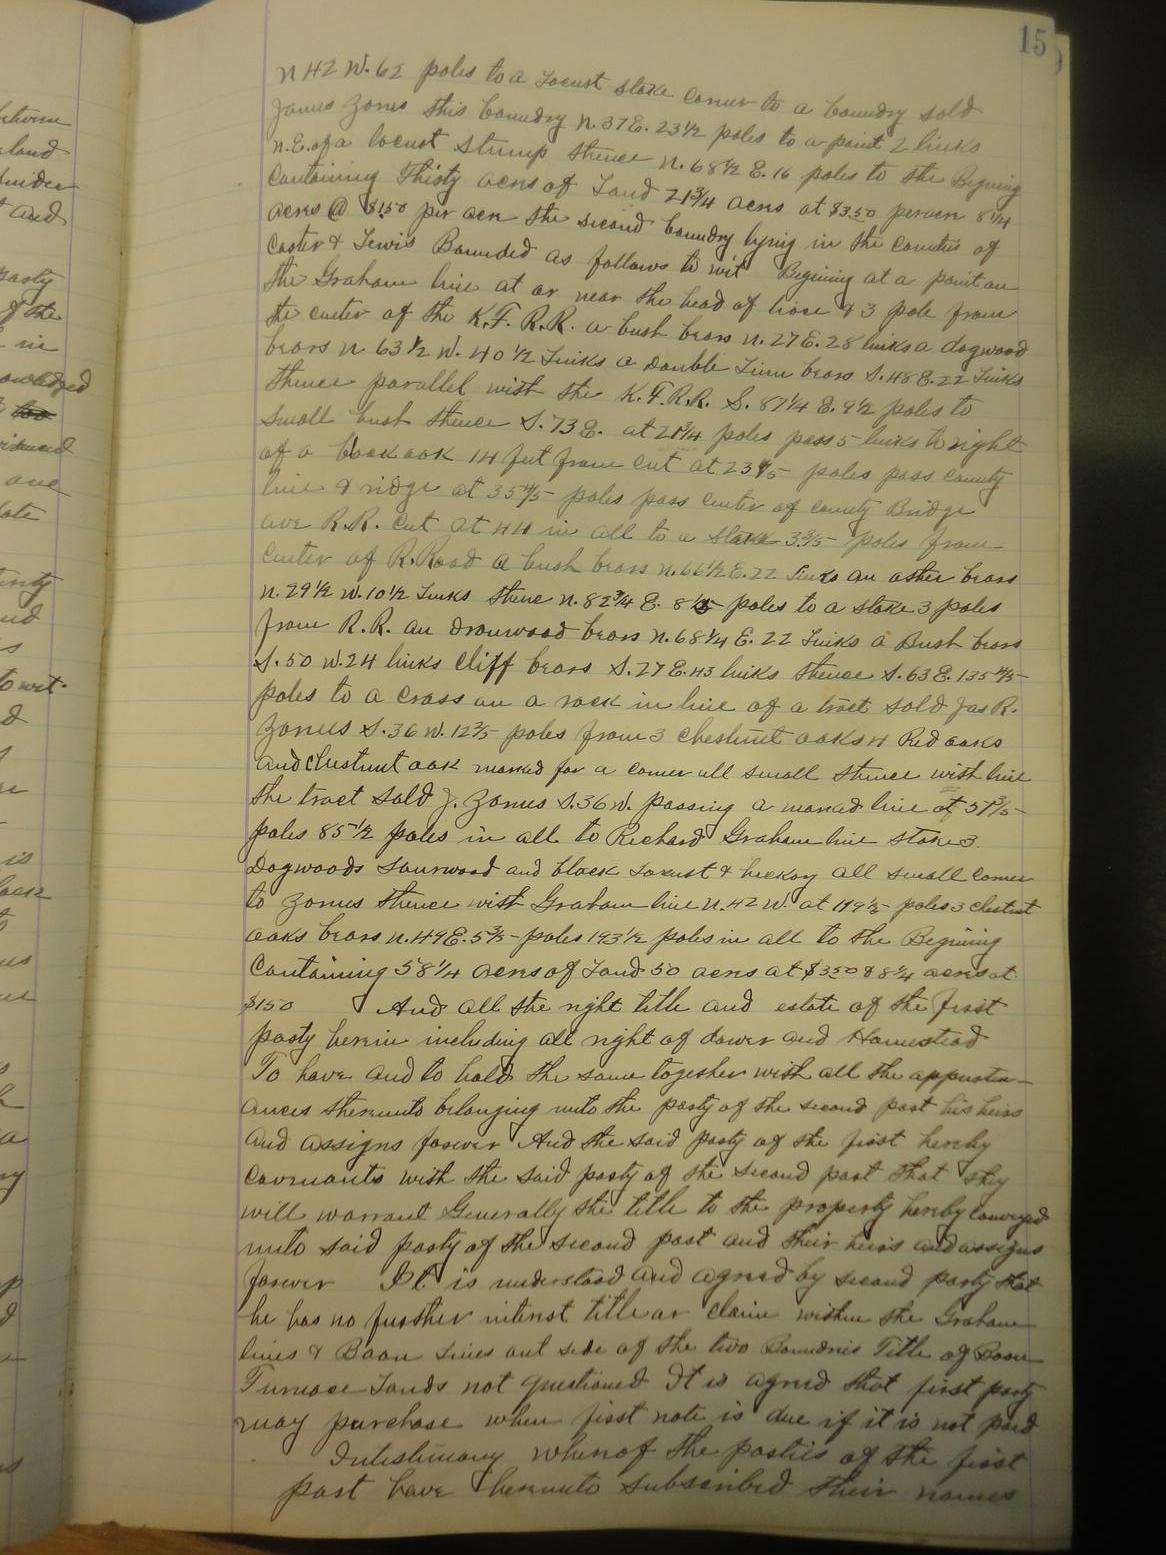 15
N 42 W. 62 poles to a Locust stake corner to a boundry sold
James Zorns this boundry N. 37 E. 23 1/2 poles to a point 2 links
N.E. of a locust stump thence N. 68 1/2 E. 16 poles to the Begining
Containing Thirty acres of Land 21 3/4 acres at $3.50 per acre 8 1/4
acres @ $1.50 per acre the second boundry lying in the Counties of
Carter & Lewis Bounded as follows to wit Begining at a point on
the Graham line at or near the head of & 3 pole from
the center of the K.F. R.R. a bush bears N. 27 E. 28 links a dogwood
bears N. 63 1/2 W. 40 1/2 Links a Double Linn bears S. 48 E. 22 Links
thence parallel with the K.F.R.R. S. 87 1/4 E. 9 1/2 poles to
small bush thence S. 73 E. at 21 3/4 poles pass 5 links to right
of a oak 14 feet from cut at 23 poles pass county
line & ridge at 35 4/5 poles pass center of county Bridge
over R.R. cut at 44 in all to a stake 3 3/5 poles from
center of R.Road a bush bears N. 66 1/2 E. 22 Links an other bears
N. 29 1/2 W. 10 1/2 Links thence N. 82 3/4 E. 8 poles to a stake 3 poles
from R.R. an Ironwood bears N. 68 1/4 E. 22 Links a Bush bears
S. 50 W. 24 links cliff bears S. 27 E. 43 links thence S. 63 E. 135 4/5
poles to a cross on a rock in line of a tract sold Jas R.
Zornes S. 36 W. 12 2/5 poles from 3 chestnut oaks 4 Red oaks
and chestnut oak marked for a corner all small thence with line
the tract sold J. Zornes S. 36 W. passing a marked line at 57 3/5
poles 85 1/2 poles in all to Richard Graham line stake 3
Dogwoods Sourwood and black Locust & hickory all small corner
to Zornes thence with Graham line N. 42 W. at 119 1/2 poles 3 chestnut
oaks bears N. 49 E. 5 3/5 poles 193 1/2 poles in all to the Begining
Containing 58 1/4 acres of Land 50 acres at $3.50 & 8 1/4 acres at
$1.50 And all the right title and estate of the first
party herein including all right of dower and Homestead
To have and to hold the same together with all the appurten-
ances thereunto belonging unto the party of the second part his heirs
and assigns forever And the said party of the first hereby
covenants with the said party of the second part that they
will warrant Generally the title to the property hereby conveyed
unto said party of the second part and their heirs and assigns
forever It is understood and agreed by second party that
he has no further interest title or claim within the Graham
lines & Boon Lines out side of the two Boundries Title of Boon
Furnace Lands not questioned It is agreed that first party
may purchase when first note is due if it is not paid
Intestimony whereof the parties of the first
part have hereunto subscribed their names